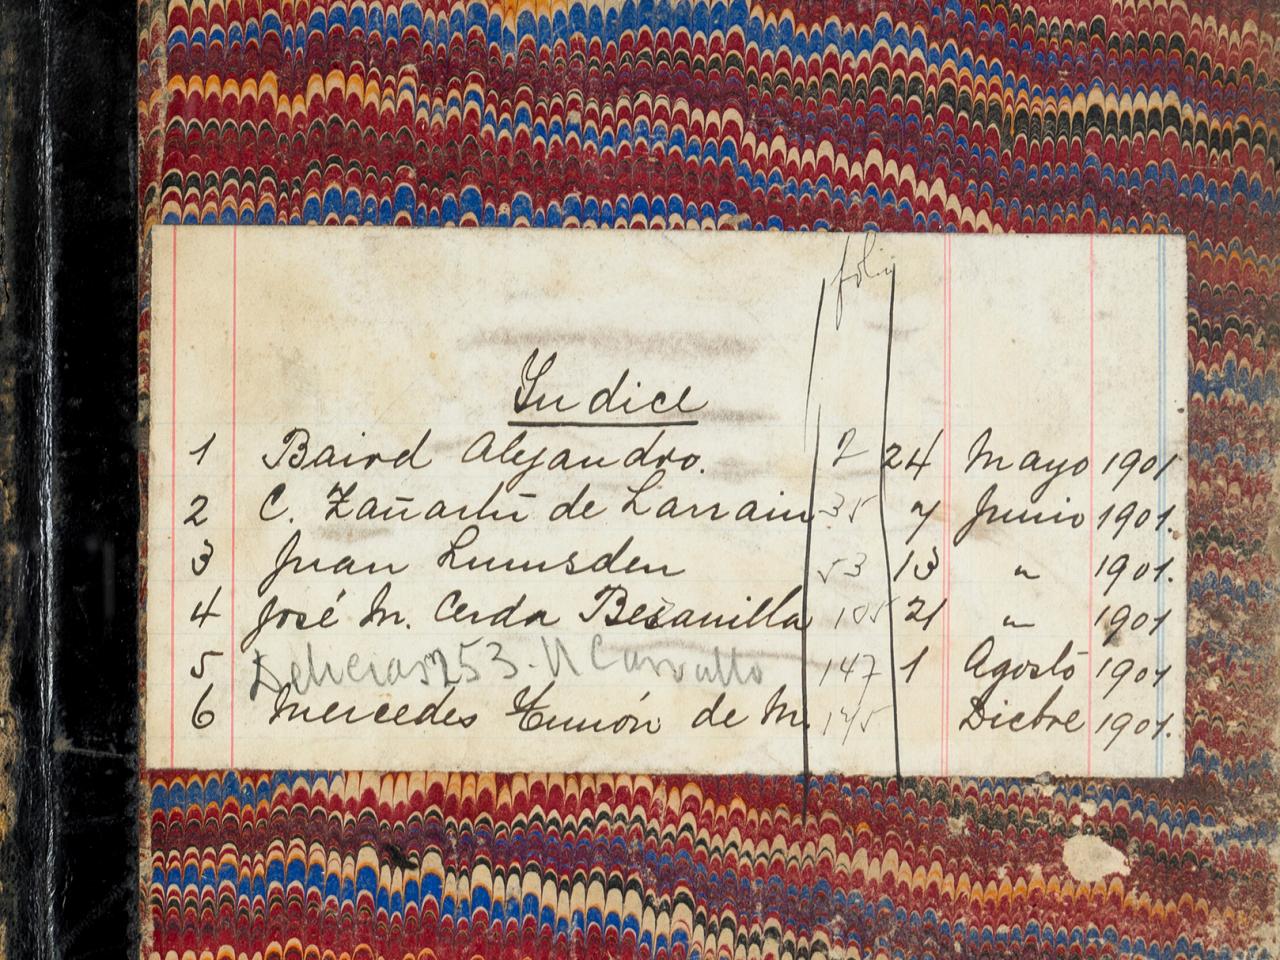 folio
Indice
1 Baird Alejandro. 2 24 Mayo 1901
2 C. Zañartu de Larrain 35 7 Junio 1901.
3 Juan Lumsden 53 13 " 1901.
4 José M. Cerda Besanilla 105 21 " 1901
5 Delicias 253. N Carvallo 147 1 Agosto 1901
6 Mercedes de M. Dicbre 1901.